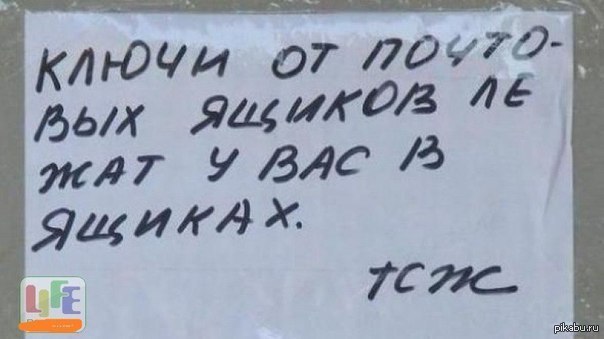 КЛЮЧИ ОТ ПОЧТО-
ВЫХ ЯЩИКОВ ЛЕ
ЖАТ У ВАС В
ЯЩИКАХ.
ТСЖ
LIFE
pikabu.ru